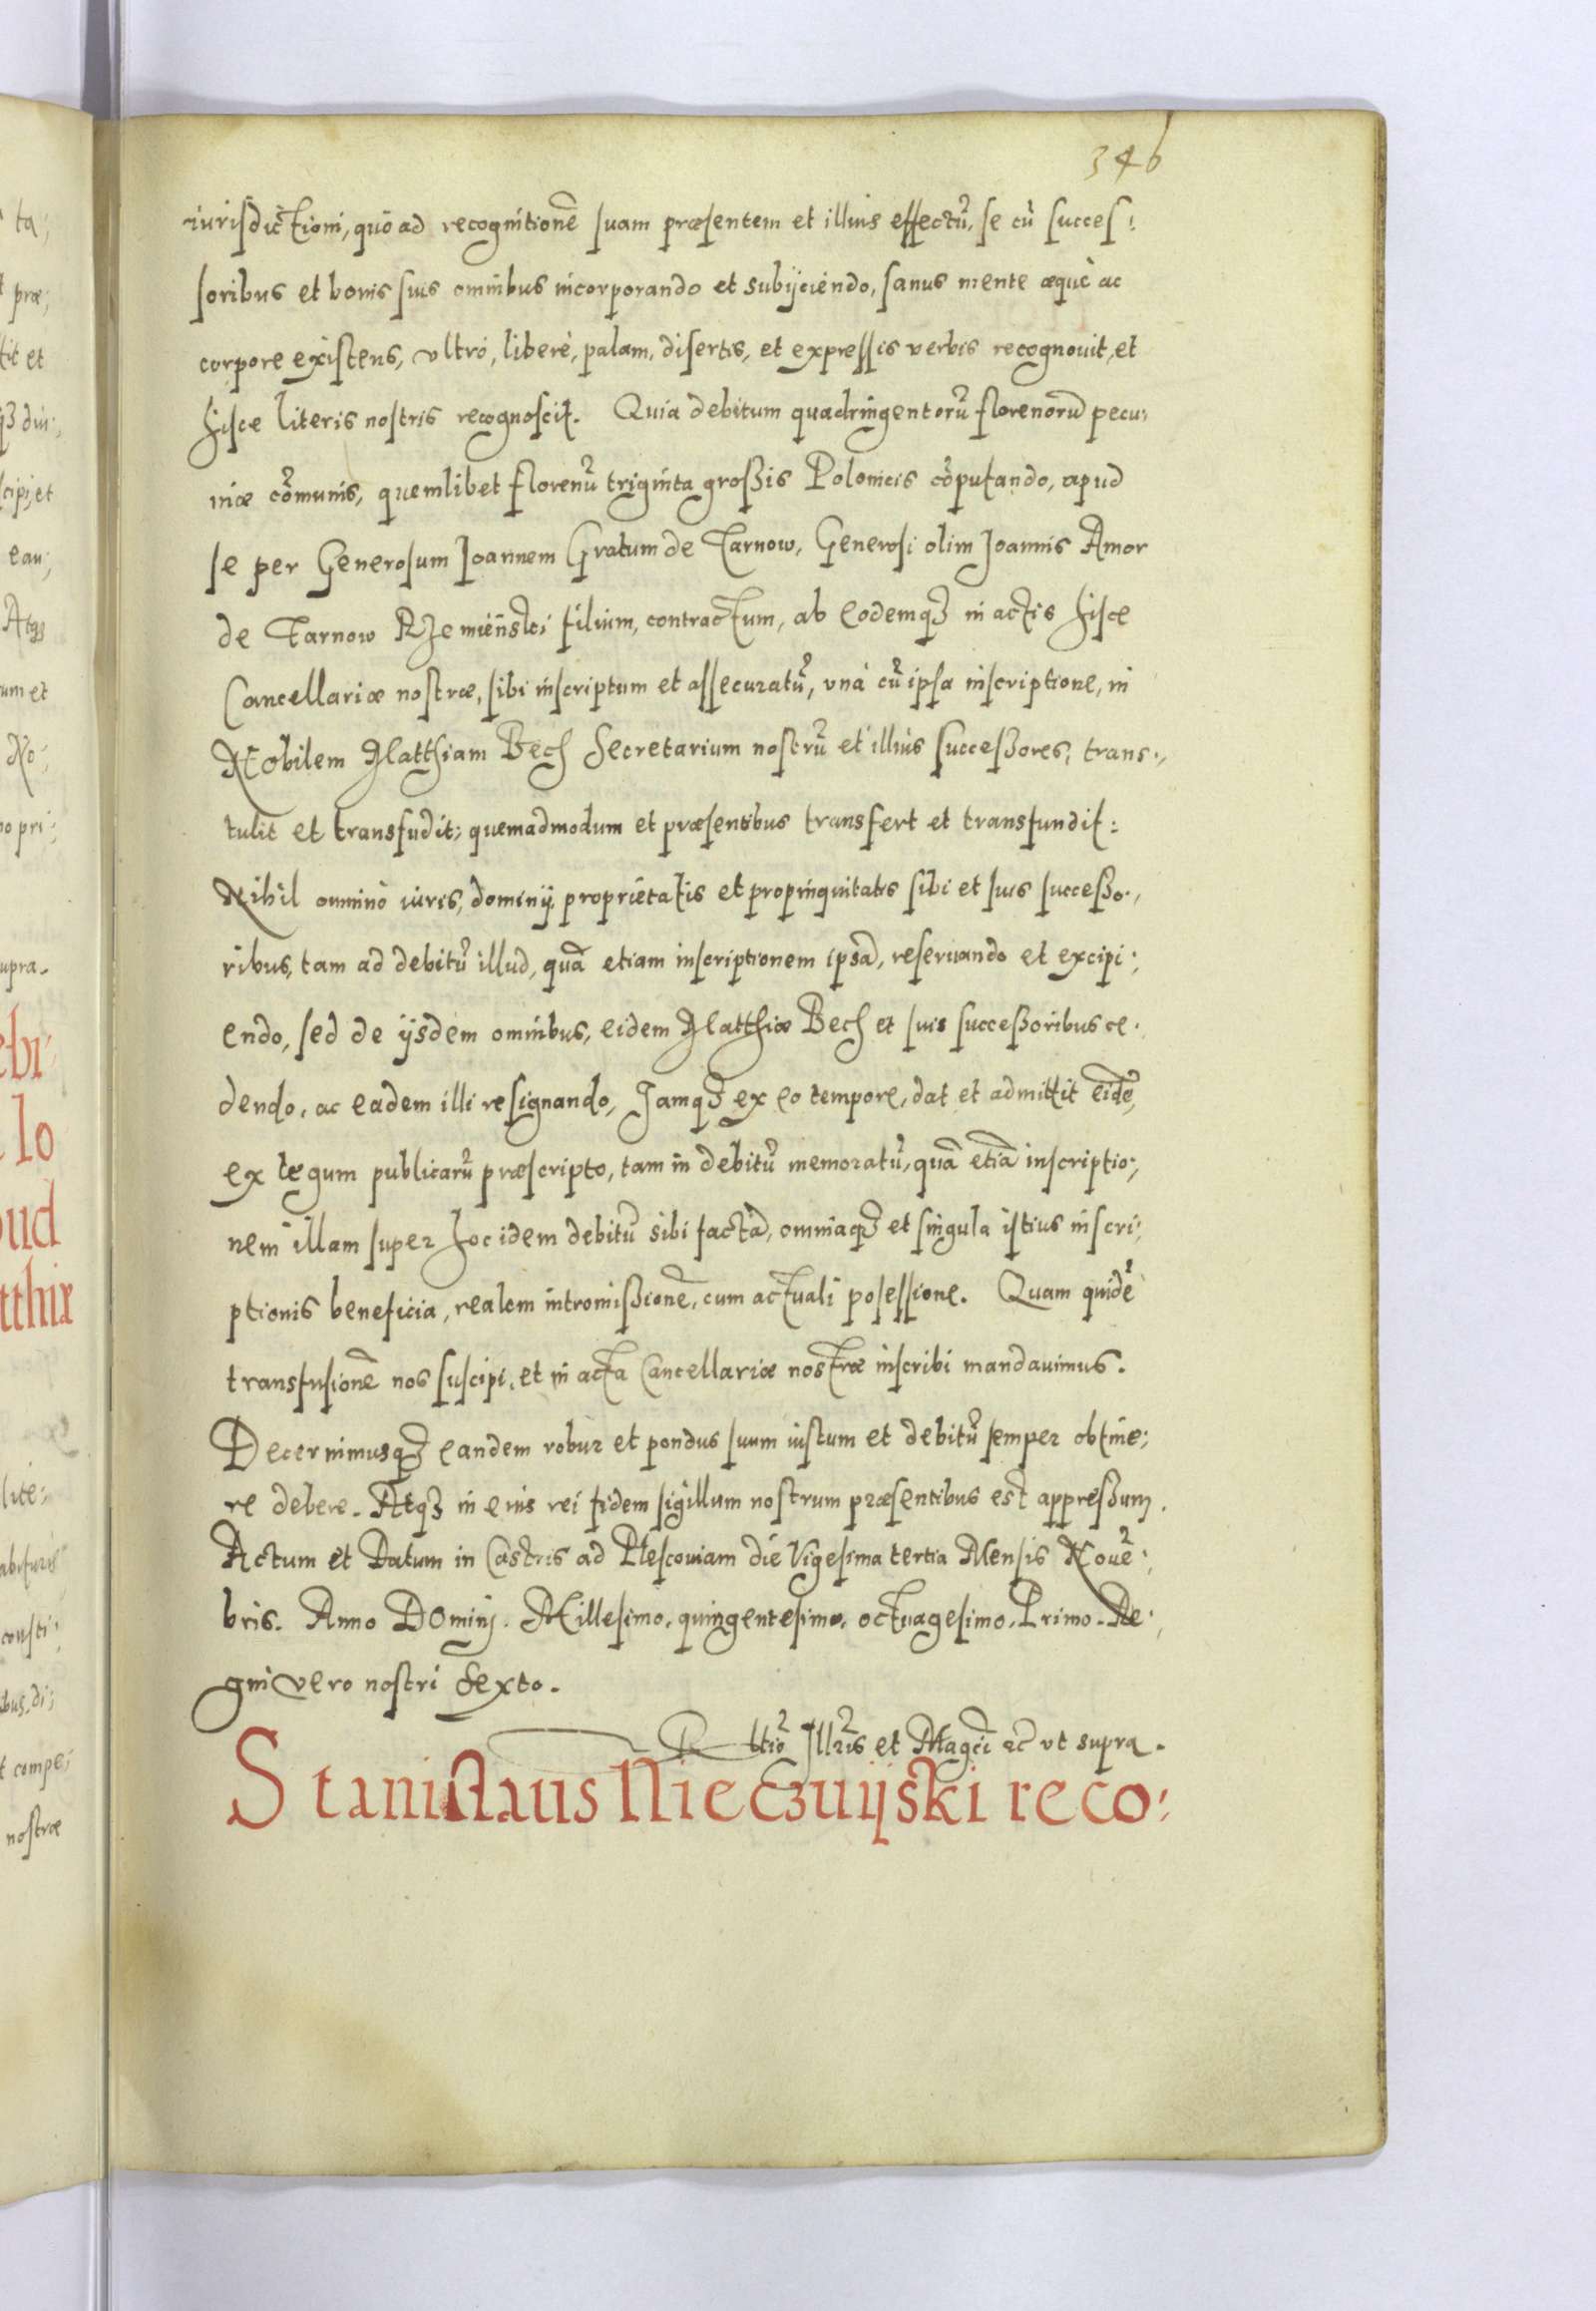 346
iurisdictioni, quo ad recognitionē suam præsentem et illius effectū, se cū succes:
soribus et bonis suis omnibus incorporando et subijciendo, sanus mente æquè ac
corpore existens, vltrò, liberè, palam, disertis, et expressis verbis recognouit, et
hisce literis nostris recognoscit. Quia debitum quadringentorū florenorū pecu:
niæ cōmunis, quemlibet florenū triginta großis Polonicis cōputando, apud
se per Generosum Joannem Gratum de Tarnow, Generosi olim Joannis Amor
de Tarnow Rzemieński filium, contractum, ab eodemqꝫ in actis hisce
Cancellariæ nostræ, sibi inscriptum et assecuratū, vnà cū ipsa inscriptione, in
Nobilem Matthiam Bech Secretarium nostrū et illius succeßores, trans:
tulit et transfudit; quemadmodum et præsentibus transfert et transfundit:
Nihil omninò iuris, dominij, proprietatis et propinquitatis sibi et suis succeßo:
ribus, tam ad debitū illud, quā etiam inscriptionem ipsā, reseruando et excipi:
endo, sed de ijsdem omnibus, eidem Matthiæ Bech et suis succeßoribus ce:
dendo, ac eadem illi resignando, Jamqꝫ ex eo tempore, dat et admittit eidē,
ex legum publicarū præscripto, tam in debitū memoratū, quā etiā inscriptio:
nem illam super hoc idem debitū sibi factā, omniaqꝫ et singula istius inscri:
ptionis beneficia, realem intromißionē, cum actuali posessione. Quam quidē
transfusionē nos suscipi, et in acta Cancellariæ nostræ inscribi mandauimus.
Decernimusqꝫ eandem robur et pondus suum iustum et debitū semper obtine:
re debere. Atqꝫ in eius rei fidem sigillum nostrum præsentibus est appreßum.
Actum et Datum in Castris ad Plescouiam die Vigesima tertia Mensis Nouē:
bris. Anno Dominj. Millesimo, quingentesimo, octuagesimo, Primo. Re:
gni vero nostri Sexto.
Rltio Illris et Magci ac vt supra.
Stanislaus Nieczuijski reco: